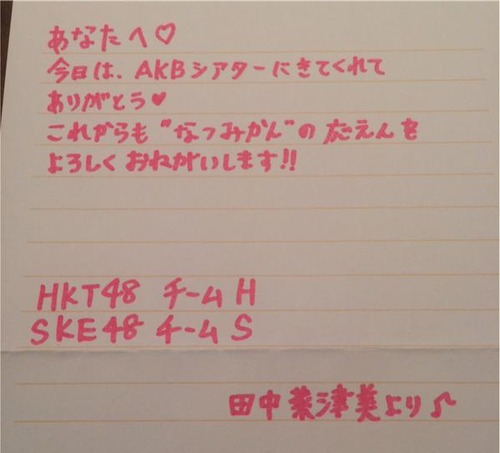 あなたへ♡
今日は、AKBシアターにきてくれて
ありがとう♥
これからも"なつみかん"の応えんを
よろしくおねがいします!!
HKT48 チームH
SKE48 チームS
田中菜津美より♪